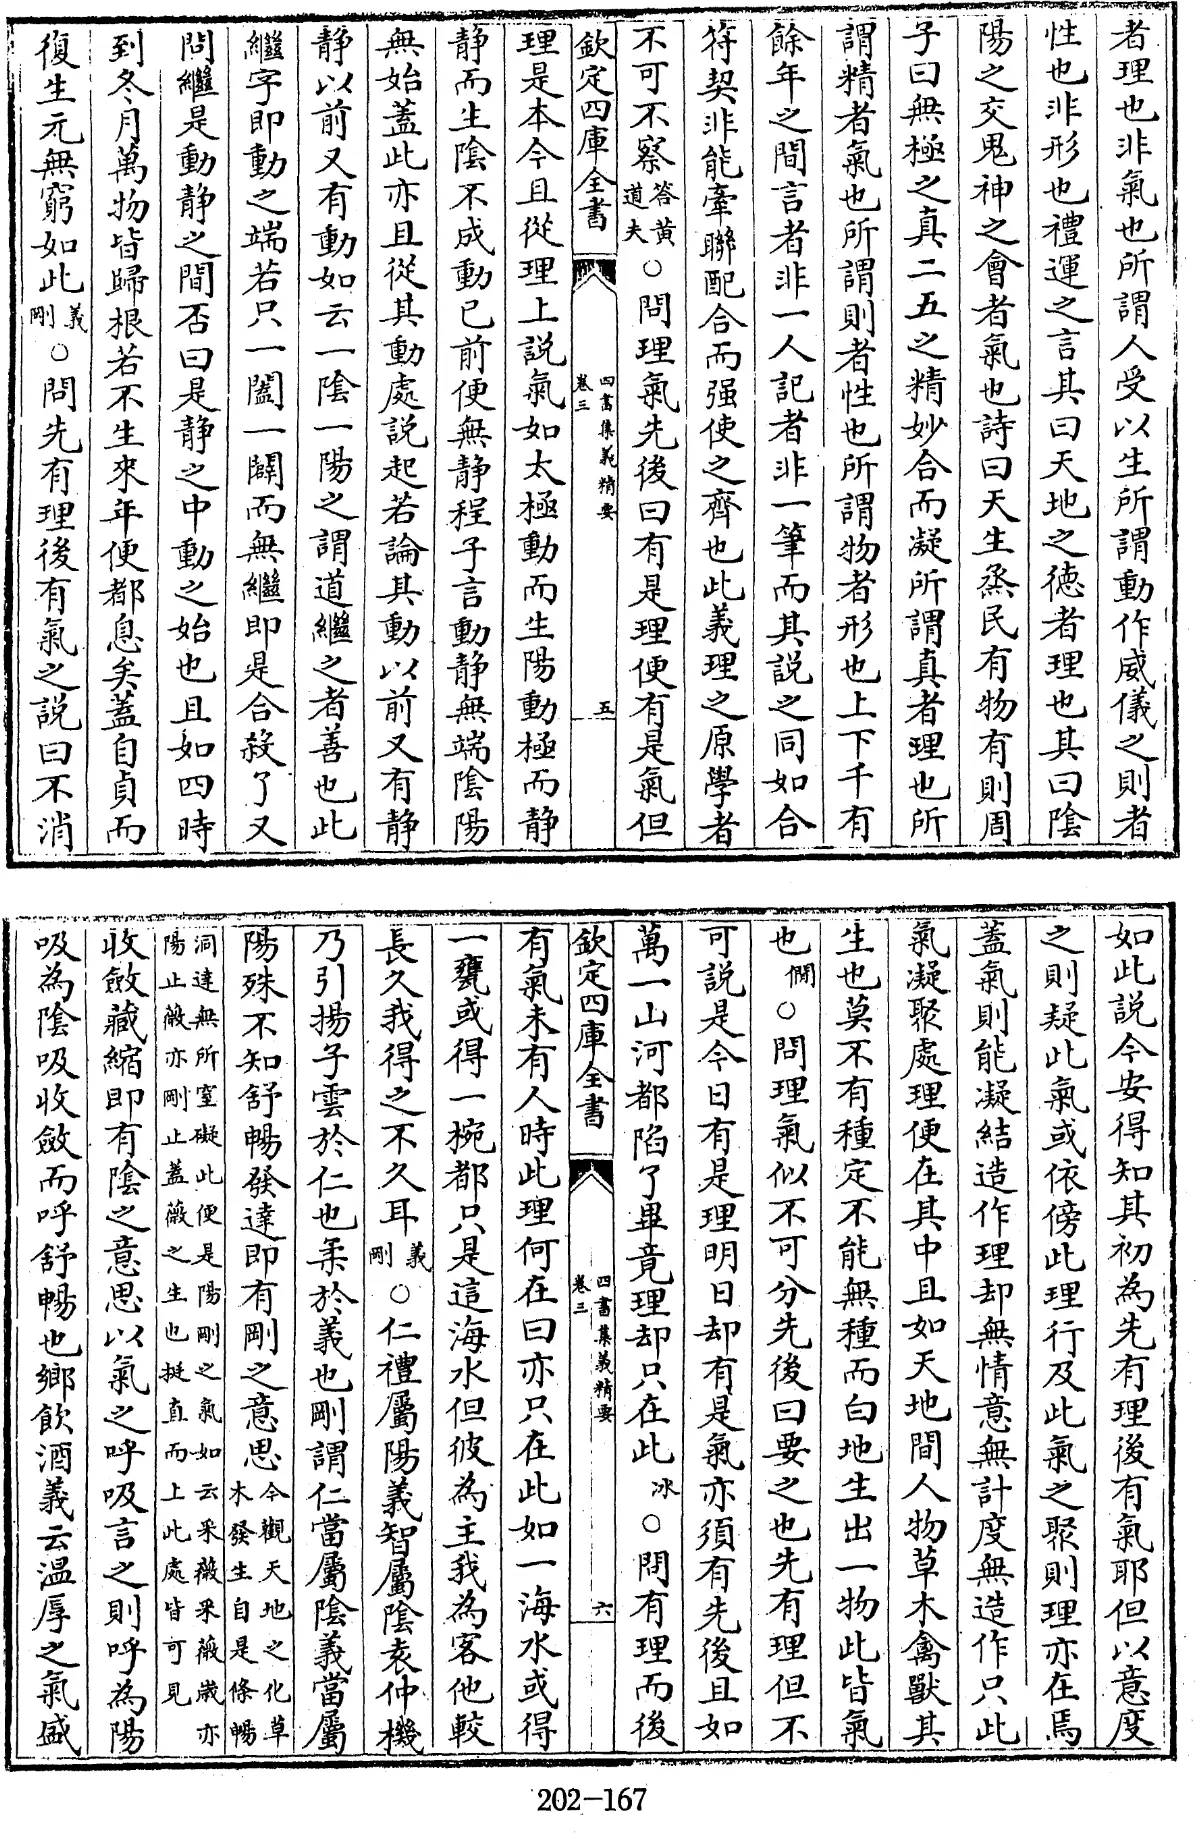 者理也非氣也所謂人受以生所謂動作威儀之則者
性也非形也禮運之言其曰天地之徳者理也其曰陰
陽之交鬼神之會者氣也詩曰天生烝民有物有則周
子曰無極之真二五之精妙合而凝所謂真者理也所
謂精者氣也所謂則者性也所謂物者形也上下千有
餘年之間言者非一人記者非一筆而其説之同如合
符契非能牽聯配合而强使之齊也此義理之原學者
不可不察答黄道夫○問理氣先後曰有是理便有是氣但
欽定四庫全書
四書集義精要
卷三
五
理是本今且從理上説氣如太極動而生陽動極而静
静而生陰不成動已前便無静程子言動静無端陰陽
無始蓋此亦且從其動處説起若論其動以前又有静
静以前又有動如云一陰一陽之謂道繼之者善也此
繼字即動之端若只一闔一闢而無繼即是合殺了又
問繼是動静之間否曰是静之中動之始也且如四時
到冬月萬物皆歸根若不生來年便都息矣蓋自貞而
復生元無窮如此義剛○問先有理後有氣之説曰不消
如此説今安得知其初為先有理後有氣耶但以意度
之則疑此氣或依傍此理行及此氣之聚則理亦在焉
蓋氣則能凝結造作理却無情意無計度無造作只此
氣凝聚處理便在其中且如天地間人物草木禽獸其
生也莫不有種定不能無種而白地生出一物此皆氣
也僩○問理氣似不可分先後曰要之也先有理但不
可説是今日有是理明日却有是氣亦須有先後且如
萬一山河都陷了畢竟理却只在此㳟○問有理而後
欽定四庫全書
四書集義精要
卷三
六
有氣未有人時此理何在曰亦只在此如一海水或得
一甕或得一椀都只是這海水但彼為主我為客他較
長久我得之不久耳義剛○仁禮屬陽義智屬陰袁仲機
乃引揚子雲於仁也柔於義也剛謂仁當屬陰義當屬
陽殊不知舒暢發達即有剛之意思今觀天地之化草
木發生自是條暢
洞達無所窒礙此便是陽剛之氣如云采薇采薇薇亦
陽止薇亦剛止蓋薇之生也挺直而上此處皆可見
收斂藏縮即有陰之意思以氣之呼吸言之則呼為陽
吸為陰吸收斂而呼舒暢也鄉飲酒義云溫厚之氣盛
202-167